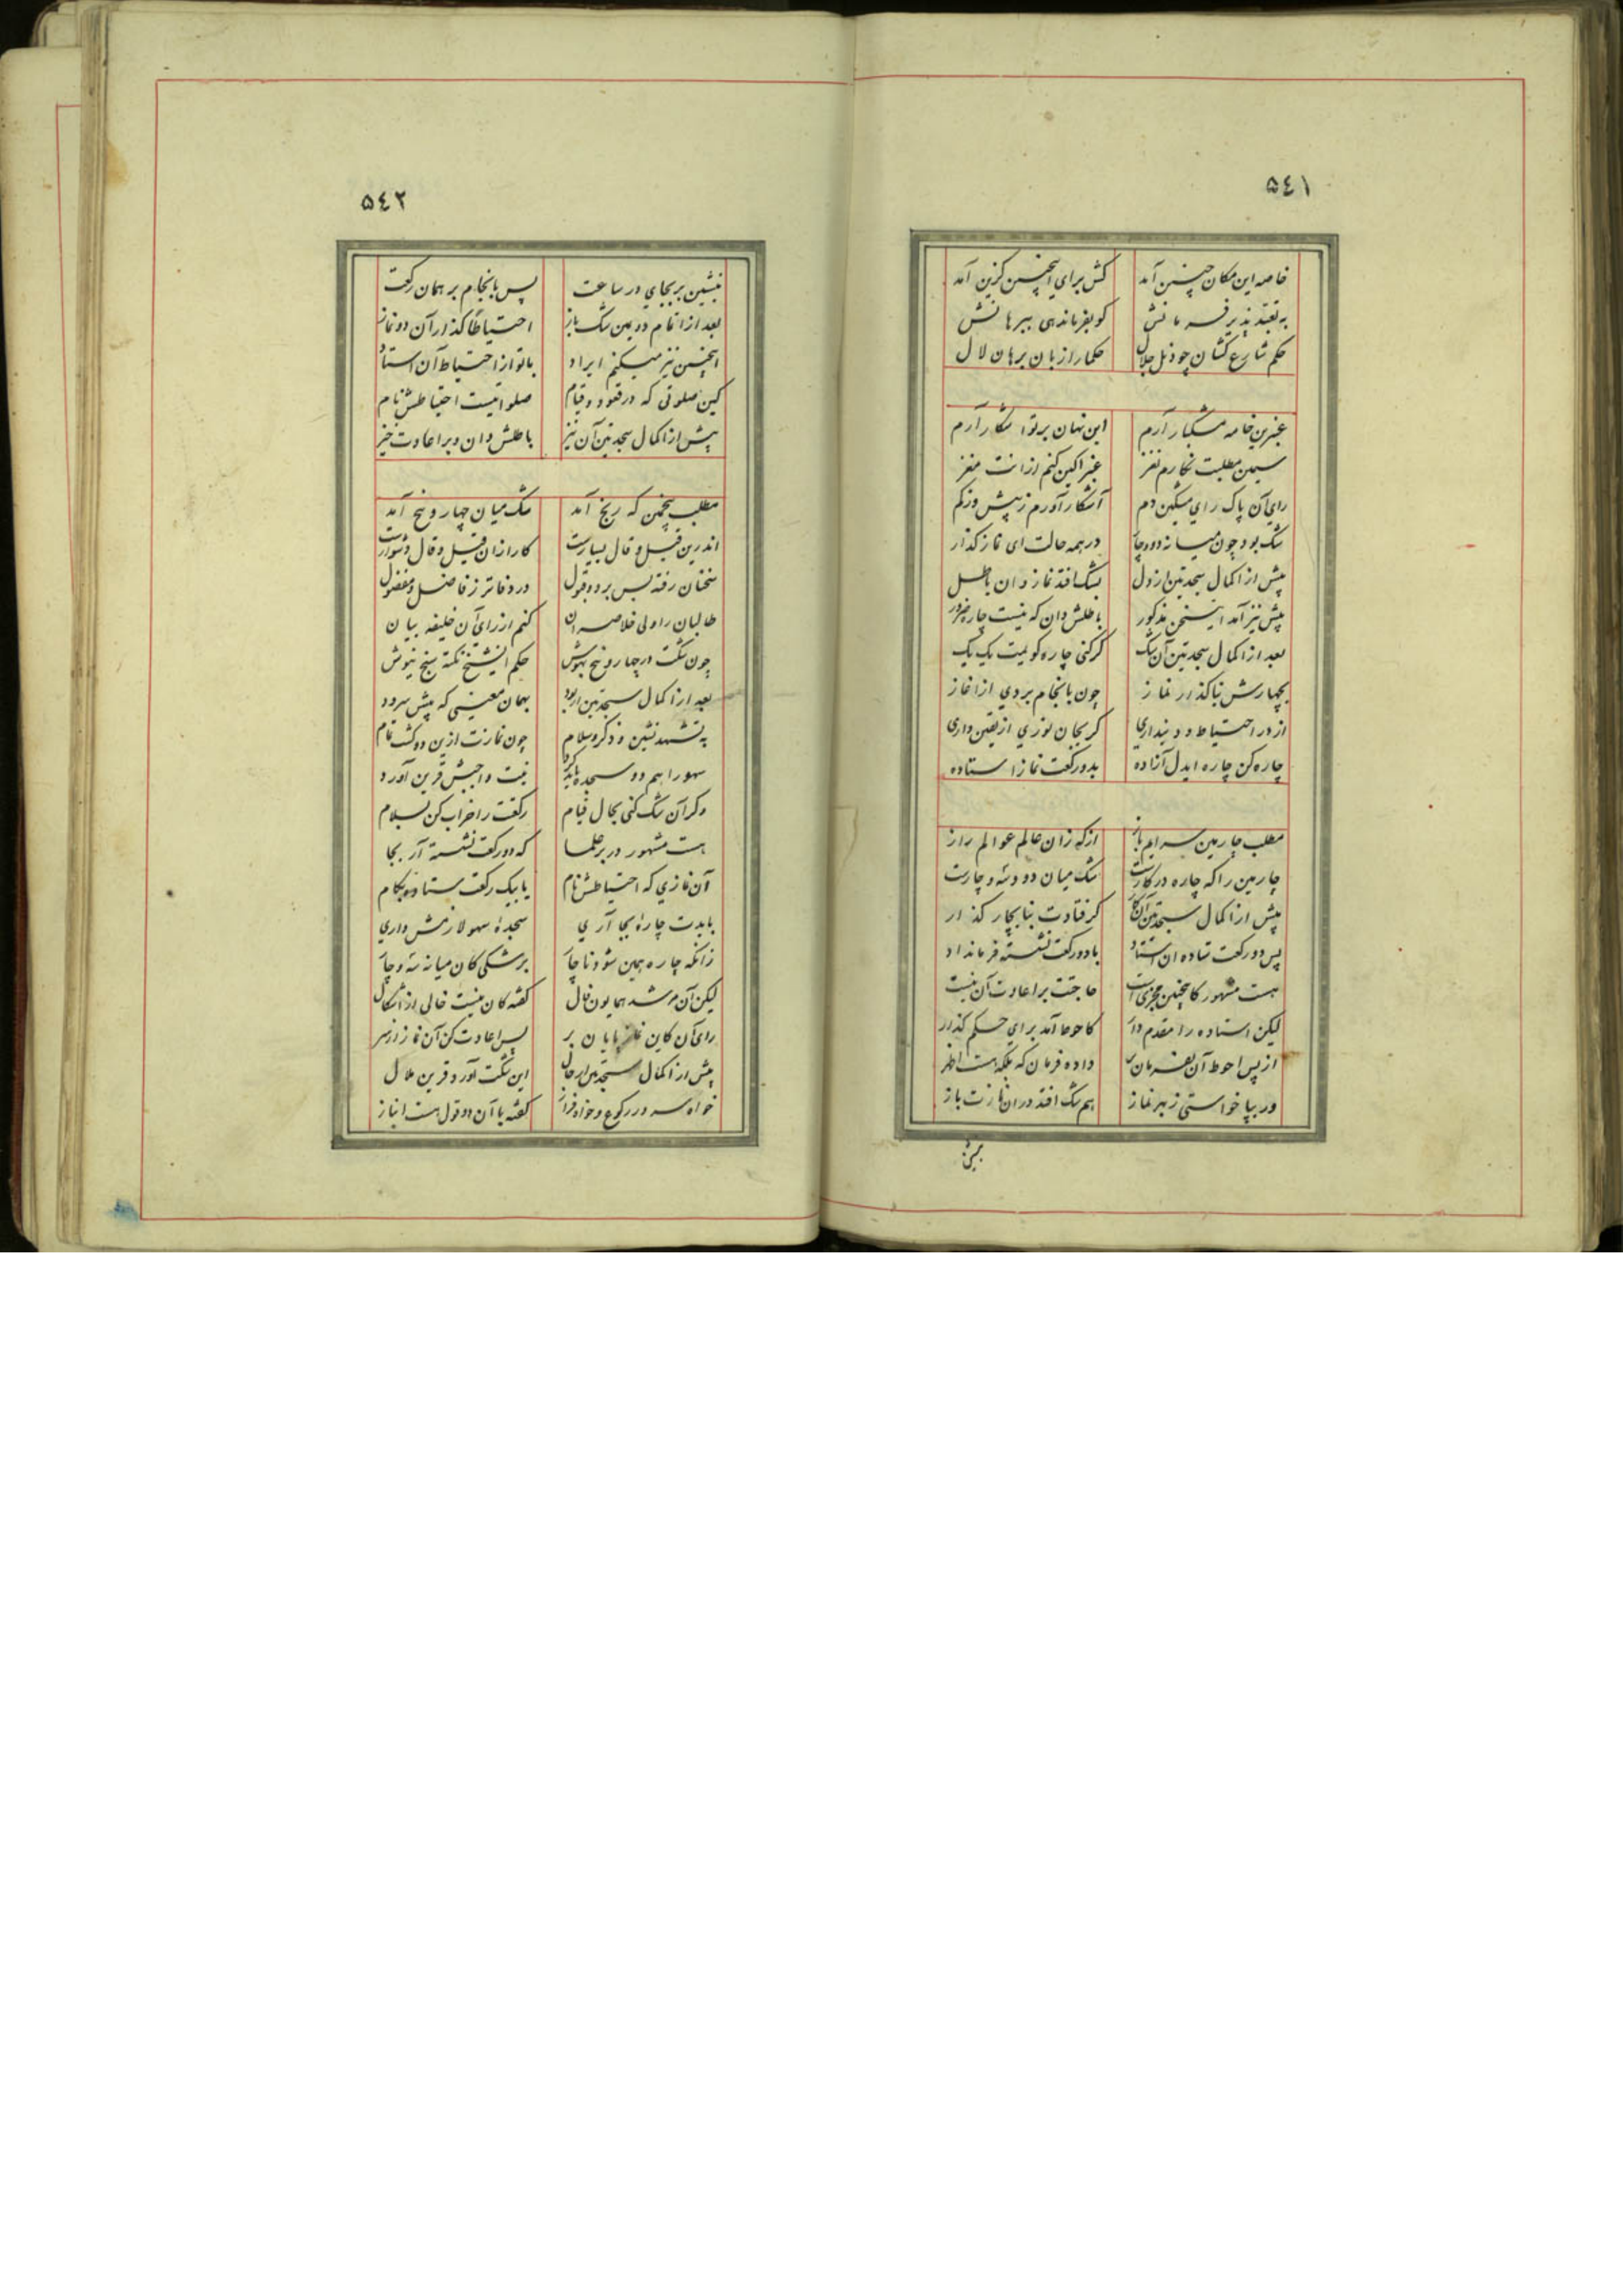 ۵۴۱
خاصه این مکان چنین آمد کش برای اینچنین گزین آمد
به تعبد پذیر فرمانش کو بفرماندهی ببرهانش
حکم شارع کشان چو ذیل جلال حکما را زبان برهان لال
عنبرین خامه مشکبار آرم این نهان بر تو آشکار آرم
سیمین مطلبت نگارم نغز عنبر اکین کنم ازانت مغز
رای آن پاک رای مشکین دم آشکار آورم ز پیش وز کم
شک بود چون میانه دو و چار در همه حالت ای نماز گذار
پیش از اکمال سجدتین از دل بشک افتد نماز دان باطل
پیش نیز آمد این سخن مذکور باطلش دان که نیست چاره ضرور
بعد از اکمال سجدتین آن شک گر کنی چاره گویمت یک یک
بچهارش بنا گذار نماز چون بانجام بردی از آغاز
از در احتیاط و دینداری گر بجان نوری از یقین داری
چاره کن چاره ایدل آزاده بدو رکعت نماز استاده
مطلب چارمین سرایم باز از که زان عالم عوالم راز
چارمین را که چاره در کارست شک میان دو و سه و چارست
پیش از اکمال سجدتین گر فتادت بنا بچار گذار
پس دو رکعت ستاده ان استاد با دو رکعت نشسته فرمان داد
هست مشهور کاینچنین مجزی است حاجت بر اعادت آن نیست
لیکن استاده را مقدم دار کاحوط آمد برای حکم گذار
از پس احوط آن داده فرمان که بلکه هست اظهر
ور بپا خواستی زبهر نماز هم شک افتد در ان نمازت باز
بنشین
۵۴۲
بنشین بر بجای در ساعت پس بانجام بر همان رکعت
بعد از اتمام دویمین شک باز احتیاطا گذار آن دو نماز
اینچنین نیز میکنم ایراد با تو از احتیاط آن استاد
کین صلوتی که در قعود و قیام صلواتیست احتیاطش نام
پیش از اکمال سجدتین آن نیز باطلش دان و بر اعادت خیز
مطلب پنجمین که رنج آمد شک میان چهار و پنج آمد
اندرین قیل و قال بسیارست کار ازان قیل و قال دشوارست
سخنان رفته بس برد و قبول در دفاتر ز فاضل و مفضول
طالبان را ولی خلاصه آن کنم از رای آن خلیفه بیان
چون شکت در چهار و پنج بهوش حکم این شیخ نکته سنج نیوش
بعد از اکمال سجدتین ار بود بهمان معنیی که پیش سرود
به تشهد نشین و ذکر و سلام چون نمازت ازین دو گشت تمام
سهو را هم دو سجده باید کرد نیت واجبش قرین آورد
وگر آن شک کنی بحال قیام رکعت را خراب کن بسلام
هست مشهور در بر علما که دو رکعت نشسته آر بجا
آن نمازی که احتیاطش نام یا بیک رکعت ستاده بکام
بایدت چاره بجا آری سجده سهو لازمش داری
زانکه چاره همین شود ناچار بر شکی کان میانه سه و چار
لیکن آن مرشد همایون فال گفته کان نیست خالی از اشکال
رای آن کاین نماز پایان بر پس اعادت کن آن نماز از سر
پیش از اکمال سجدتین ار حال این شکت آورد قرین ملال
خواه سر در رکوع و خواه فراز گفته با آن دو قول هست انباز